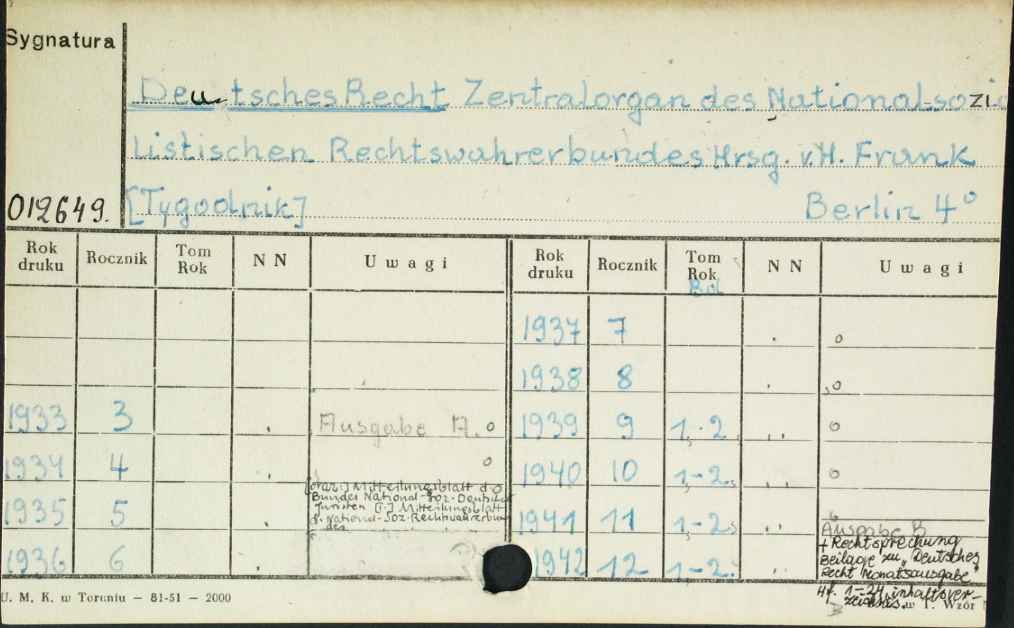 Sygnatura
Deutsches Recht Zentralorgan des National-sozia
listischen Rechtswahrerbundes Hrsg. v. H. Frank
012649. [Tygodnik] Berlin 4°
Rok druku Rocznik Tom Rok N N Uwagi Rok druku Rocznik Tom Rok Bd N N Uwagi
1937 7 o
1938 8 o
1933 3 Ausgabe A. o 1939 9 1,-2. o
1934 4 o 1940 10 1,-2. o
1935 5 [oraz:] Mitteilungsblatt d.
Bundes National-Soz. Deutscher
Juristen [:] Mitteilungsblatt
d. National-Soz. Rechtswahrerbun-
des 1941 11 1,-2.
1936 6 1942 12 1,-2. Ausgabe B
+ Rechtsprechung
Beilage zu „Deutsches
Recht Monatsausgabe"
Hf. 1-24, inhaltsver-
zeichnis.
U. M. K. w Toruniu — 81-51 — 2000 w T. Wzór